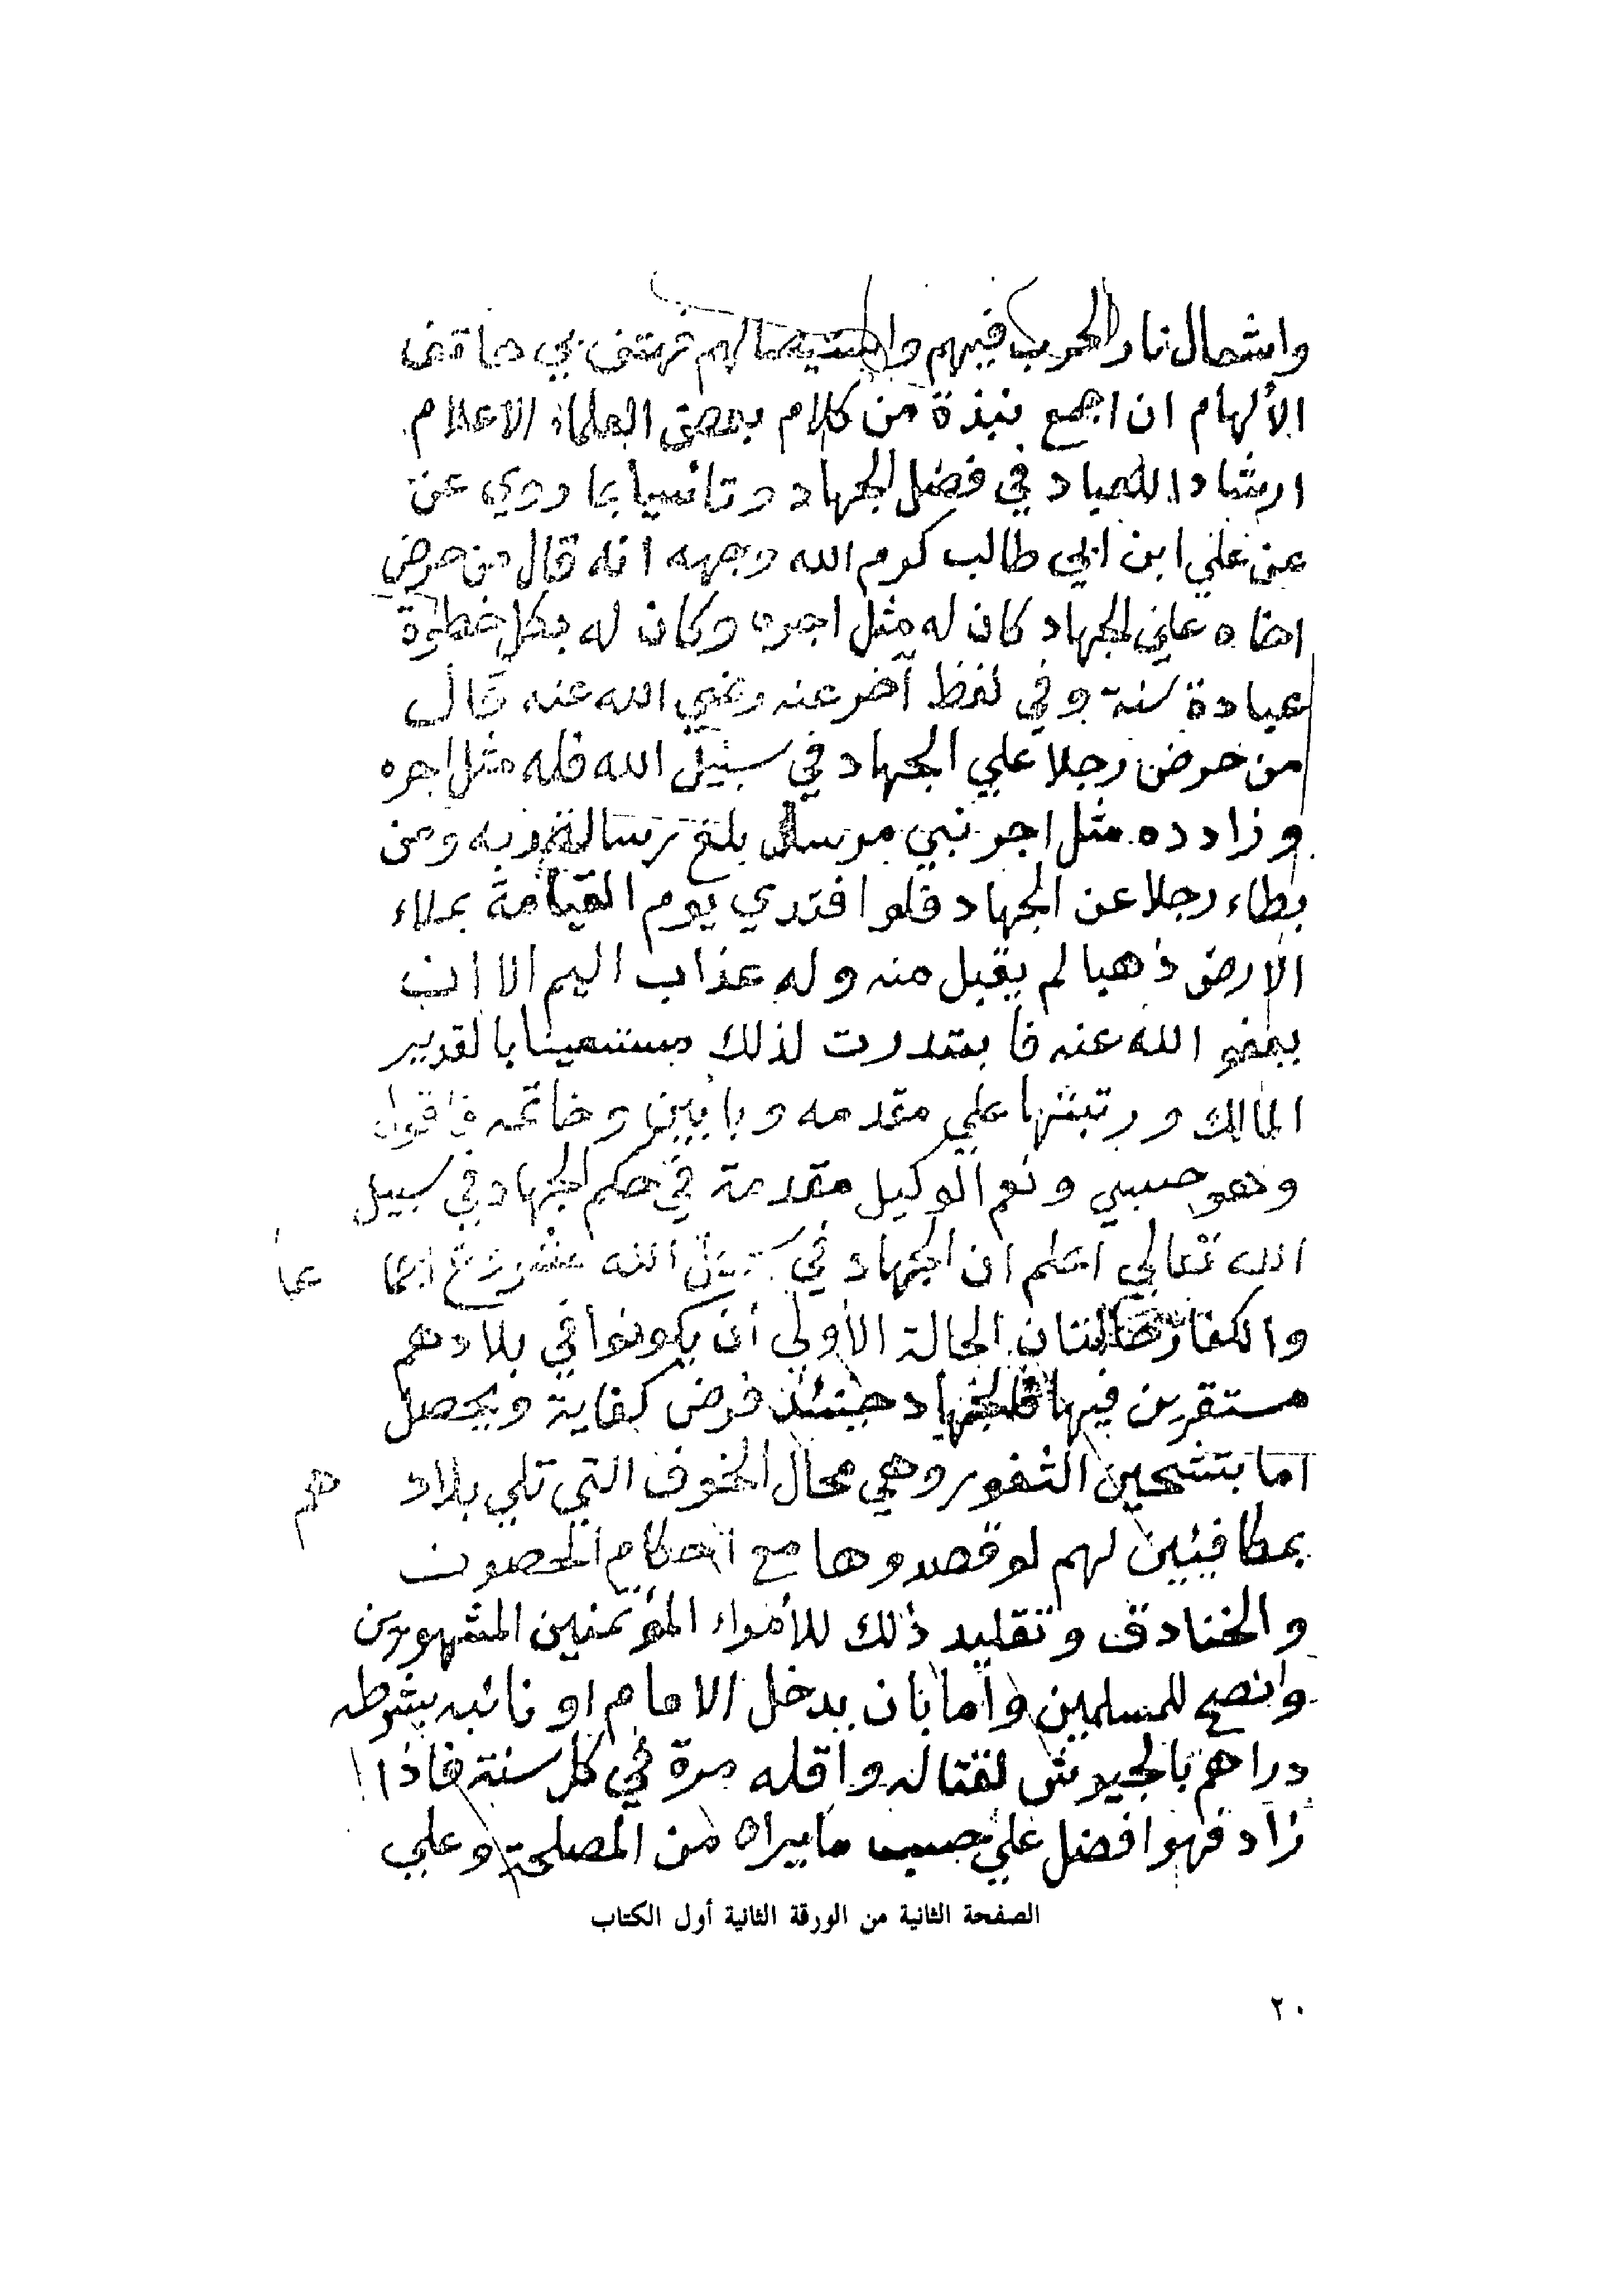 واشعال نار الحرب فيهم واستيصالهم فهتف بي هاتف
الألهام ان اجمع نبذة من كلام بعض العلماء الاعلام
ارشادا للعباد في فضل الجهاد وتانسيا بما روي عن
عن علي ابن ابي طالب كرم الله وجهه انه قال من حرض
اخاه علي الجهاد كان له مثل اجره وكان له بكل خطوة
عبادة سنة وفي لفظ آخر عنه رضي الله عنه قال
من حرض رجلا علي الجهاد في سبيل الله فله مثل اجره
وزاده مثل اجر نبي مرسل بلغ رسالة ربه ومن
بطاء رجلا عن الجهاد فلو افتدي يوم القيامة بملاء
الارض ذهبا لم يقبل منه وله عذاب اليم الا ان
يعفو الله عنه فابتدرت لذلك مستعينا بالقدير
المالك ورتبتها علي مقدمه وبابين وخاتمه فاقول
وهو حسبي ونعم الوكيل مقدمة في حكم الجهاد في سبيل
الله تعالي اعلم ان الجهاد في سبيل الله مشروع اجما عا
والكفار حالتان الحالة الأولي أن يكونوا في بلادهم
مستقرين فيها فالجهاد حينئذ فرض كفاية ويحصل
اما بتشحين الثغور وهي محال الخوف التي تلي بلاد هم
بمكافيئين لهم لو قصدوها مع احكام الحصون
والخنادق وتقليد ذلك للأمراء المؤتمنين المشهورين
وانصح للمسلمين واما بان يدخل الامام او نائبه بشرطه
دراهم بالجيوش لقتاله واقله مرة في كل سنة فاذا
زاد فهو افضل علي حسب ما يراه من المصلحة وعلي
الصفحة الثانية من الورقة الثانية أول الكتاب
٢٠